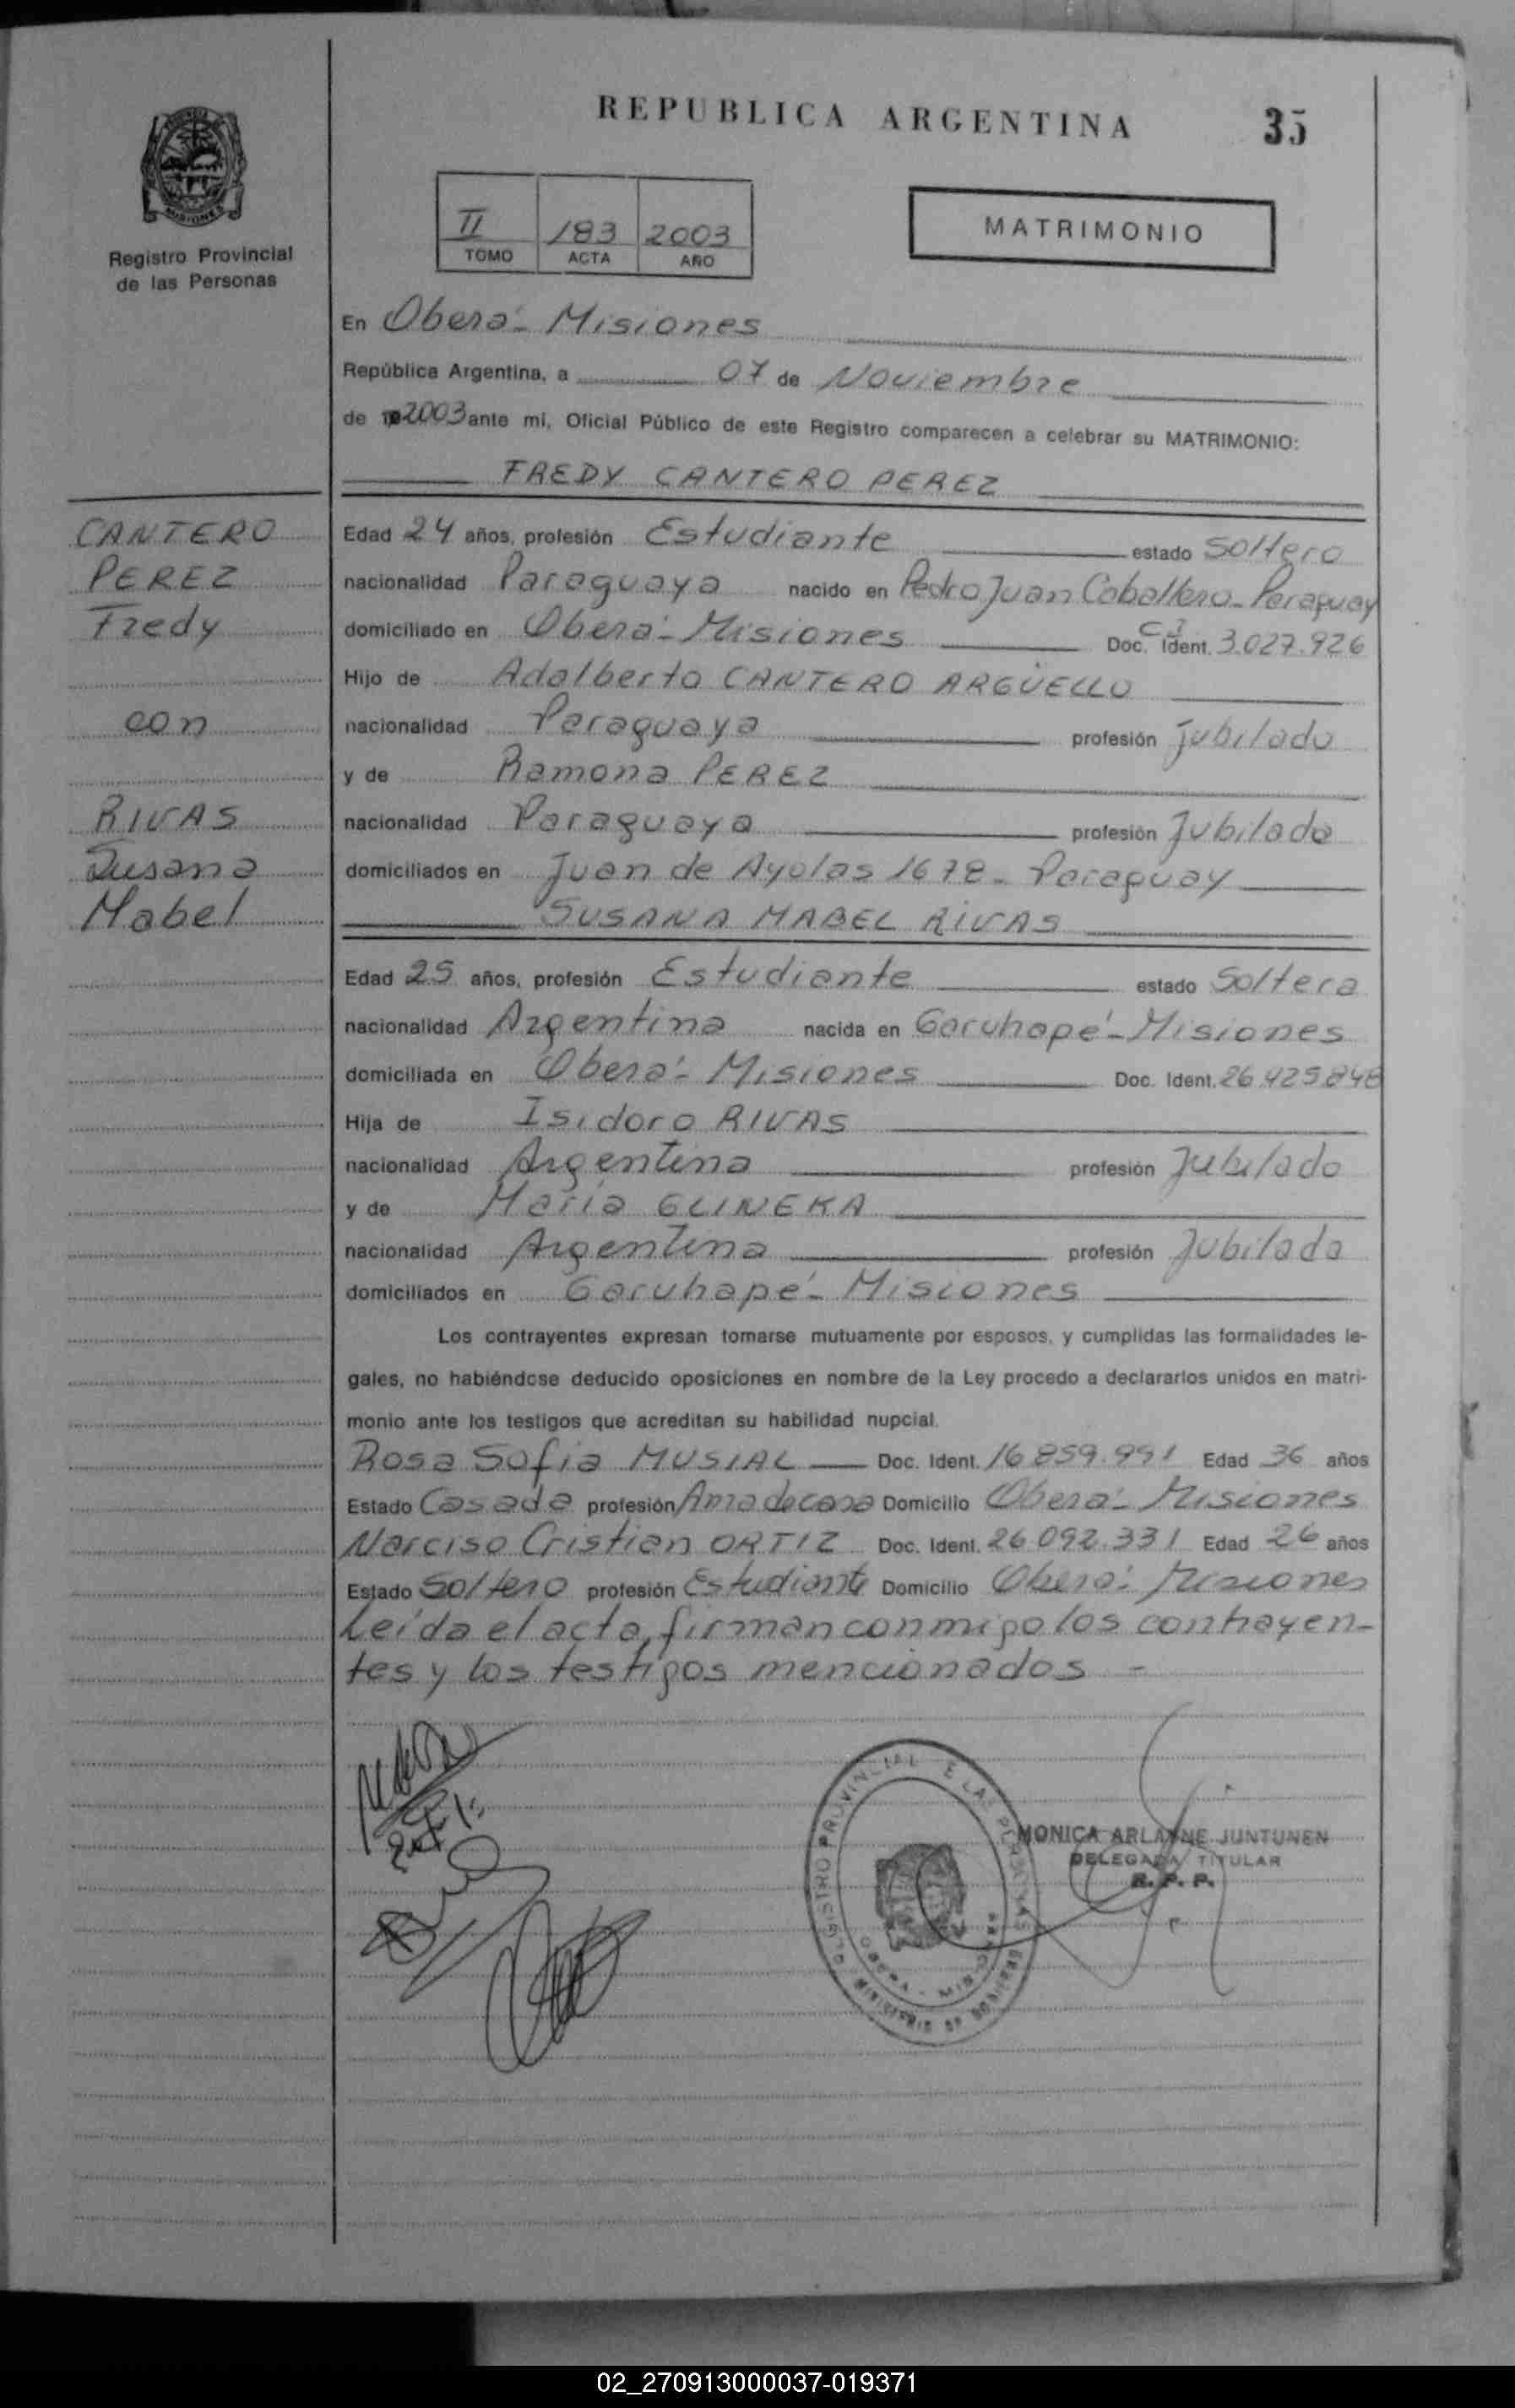 REPUBLICA ARGENTINA
35
Registro Provincial
de las Personas
II 183 2003
TOMO ACTA AÑO
MATRIMONIO
En Oberá - Misiones
República Argentina, a 07 de Noviembre
de 2003 ante mi, Oficial Público de este Registro comparecen a celebrar su MATRIMONIO:
FREDY CANTERO PEREZ
CANTERO
PEREZ
Fredy
con
RIVAS
Susana
Mabel
Edad 24 años, profesión Estudiante estado Soltero
nacionalidad Paraguaya nacido en Pedro Juan Caballero - Paraguay
domiciliado en Oberá - Misiones Doc. Ident. C I 3.027.926
Hijo de Adalberto CANTERO ARGÜELLO
nacionalidad Paraguaya profesión Jubilado
y de Ramona PEREZ
nacionalidad Paraguaya profesión Jubilada
domiciliados en Juan de Ayolas 1678 - Paraguay
SUSANA MABEL RIVAS
Edad 25 años, profesión Estudiante estado Soltera
nacionalidad Argentina nacida en Garuhapé - Misiones
domiciliada en Oberá - Misiones Doc. Ident. 26.425.848
Hija de Isidoro RIVAS
nacionalidad Argentina profesión Jubilado
y de María GLINEKA
nacionalidad Argentina profesión Jubilada
domiciliados en Garuhapé - Misiones
Los contrayentes expresan tomarse mutuamente por esposos, y cumplidas las formalidades le-
gales, no habiéndose deducido oposiciones en nombre de la Ley procedo a declararlos unidos en matri-
monio ante los testigos que acreditan su habilidad nupcial.
Rosa Sofia MUSIAL Doc. Ident. 16.859.991 Edad 36 años
Estado Casada profesión Ama de casa Domicilio Oberá - Misiones
Narciso Cristian ORTIZ Doc. Ident. 26.092.331 Edad 26 años
Estado Soltero profesión Estudiante Domicilio Oberá - Misiones
Leída el acta, firman conmigo los contrayen-
tes y los testigos mencionados -
REGISTRO PROVINCIAL DE LAS PERSONAS
OBERA - MISIONES
MINISTERIO DE GOBIERNO
MONICA ARLANNE JUNTUNEN
DELEGADA TITULAR
R. P. P.
02_270913000037-019371